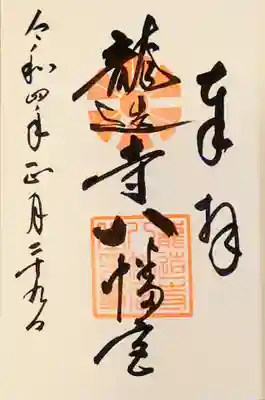 奉拝
龍造寺八幡宮
令和四年正月二十九日